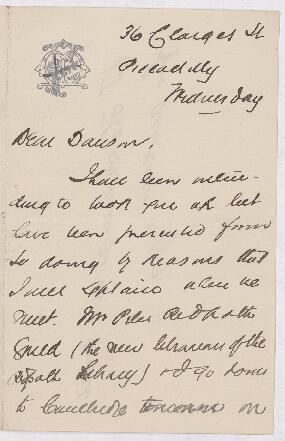 36 Clarges St
Piccadilly
Wednesday
Dear Dawson,
I have been inten-
ding to look you up but
have been prevented from
so doing by reasons that
I will explain when we
meet. Mr Peter Redpath
Guild (the new librarian of the
Redpath Library) & I go down
to Cambridge tomorrow on